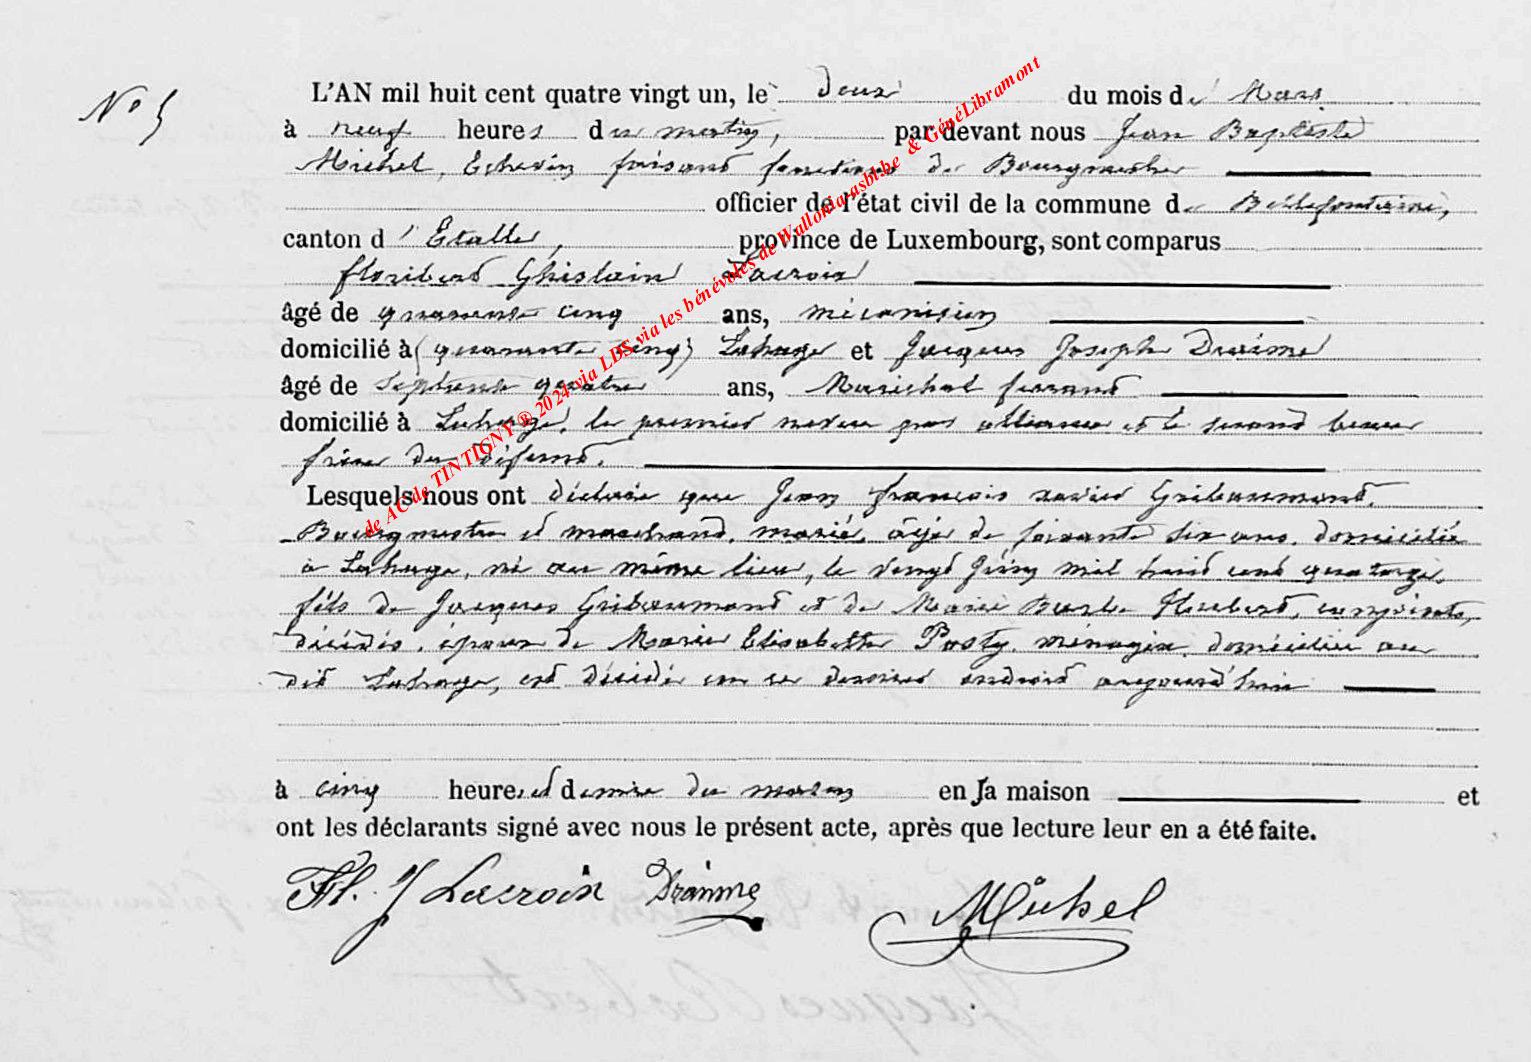 N° 5
L'AN mil huit cent quatre vingt un, le deux du mois de Mars
à neuf heures du matin, par devant nous Jean Baptiste
Michel, Echevin faisant fonctions de Bourgmestre
officier de l'état civil de la commune de Bellefontaine,
canton d'Etalle, province de Luxembourg, sont comparus
floribert Ghislain Lacroix
âgé de quarante cinq ans, mécanicien
domicilié à (quarante cinq) Lahage et Jacques Joseph Draime
âgé de Septante quatre ans, Maréchal ferrant
domicilié à Lahage, le premier neveu par alliance et le second beau
frère du défunt.
Lesquels nous ont déclaré que Jean françois xavier Gribaumont,
Bourgmestre et marchand, marié, âgé de soixante six ans, domicilié
à Lahage, né au même lieu, le vingt Juin mil huit cent quatorze,
fils de Jacques Gribaumont et de Marie Barbe Houbert, conjoints,
décédés, époux de Marie Elisabette Posty, ménagère, domiciliée au
dit Lahage, est décédé en ce dernier endroit aujourd'hui
à cinq heures et demie du matin en sa maison et
ont les déclarants signé avec nous le présent acte, après que lecture leur en a été faite.
Fl. J Lacroix Draime Michel
de AC de TINTIGNY ® 2024 via LDS via les bénévoles de Wallonia-asbl.be & GénéLibramont